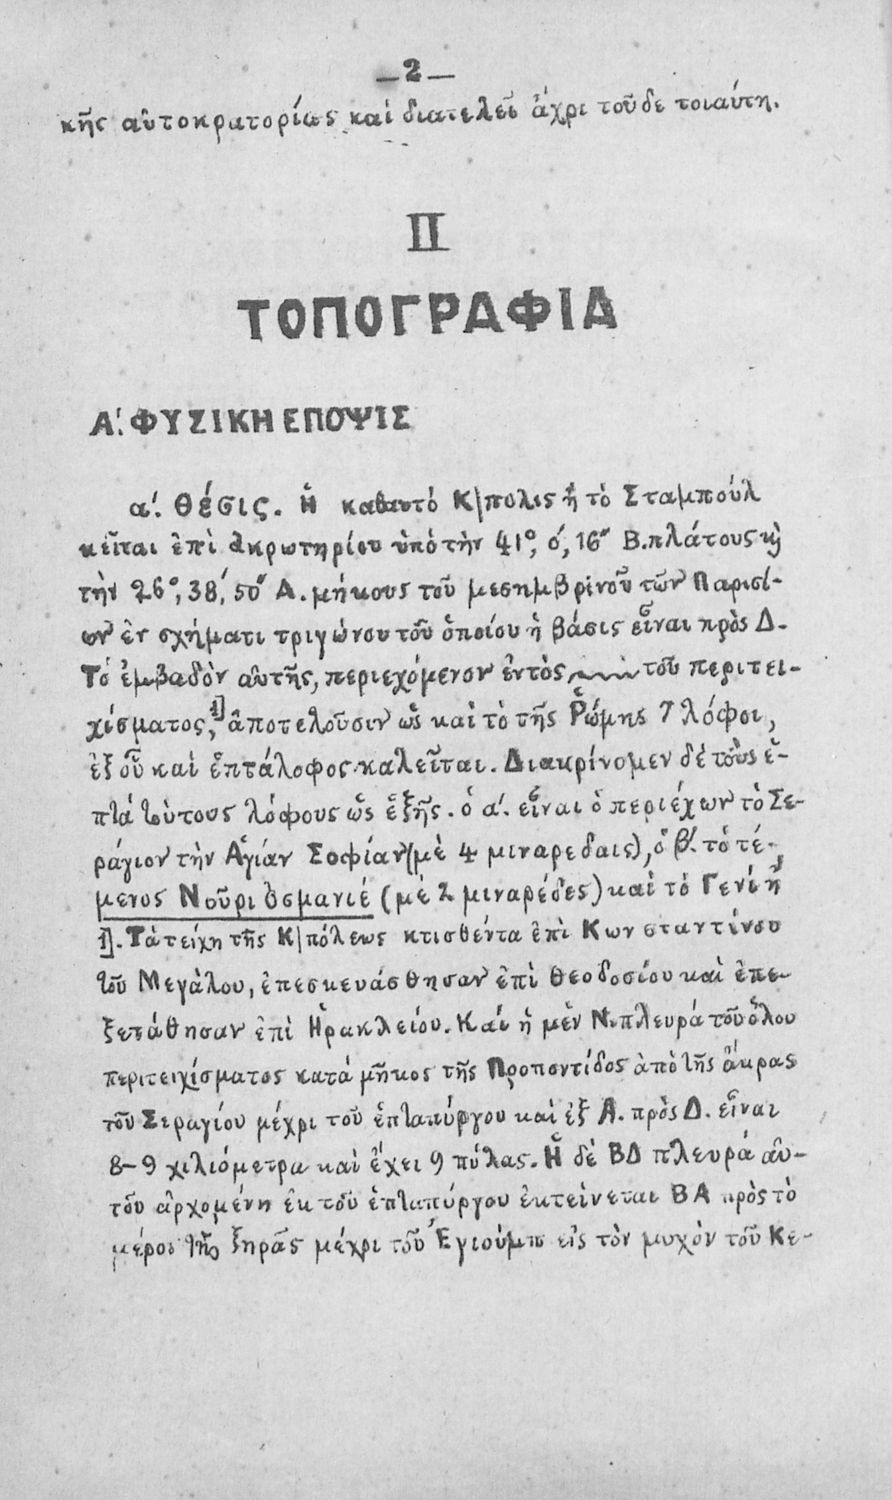 —2—
κῆς αὐτοκρατορίας καὶ διατελεῖ ἄχρι τοῦδε τοιαύτη.
II
ΤΟΠΟΓΡΑΦΙΑ
Α΄. ΦΥΣΙΚΗ ΕΠΟΨΙΣ
α΄. Θέσις. Ἡ καθαυτό Κ/πολις ἢ τὸ Σταμπούλ
κεῖται ἐπὶ ἀκρωτηρίου ὑπὸ τὴν 41°, 0΄, 16" Β. πλάτους κὴ
τὴν 26°, 38΄, 50" Α. μήκους τοῦ μεσημβρινοῦ τῶν Παρισί-
ων ἐν σχήματι τριγώνου τοῦ ὁποίου ἡ βάσις εἶναι πρὸς Δ.
Τὸ ἐμβαδὸν αὐτῆς, περιεχόμενον ἐντὸς τοῦ περιτει-
χίσματος, 1) ἀποτελοῦσιν ὡς καὶ τὸ τῆς Ῥώμης 7 λόφοι,
ἐξ οὗ καὶ ἑπτάλοφος καλεῖται. Διακρίνομεν δὲ τοὺς ἑ-
πτά τούτους λόφους ὡς ἑξῆς. ὁ α΄. εἶναι ὁ περιέχων τὸ Σε-
ράγιον τὴν Ἁγίαν Σοφίαν (μὲ 4 μιναρεδαις), ὁ β΄. τὸ τέ-
μενος Νοῦρι Ὀσμανιέ (μὲ 2 μιναρέδες) καὶ τὸ Γενί ἢ
1). Τὰ τείχη τῆς Κ/πόλεως κτισθέντα ἐπὶ Κωνσταντίνου
τοῦ Μεγάλου, ἐπεσκευάσθησαν ἐπὶ Θεοδοσίου καὶ ἐπε-
ξετάθησαν ἐπὶ Ἡρακλείου. Καὶ ἡ μὲν Ν. πλευρά τοῦ ὅλου
περιτειχίσματος κατά μῆκος τῆς Προποντίδος ἀπὸ τῆς ἄκρας
τοῦ Σεραγίου μέχρι τοῦ ἑπταπύργου καὶ ἐξ Α. πρὸς Δ. εἶναι
8-9 χιλιόμετρα καὶ ἔχει 9 πύλας. Ἡ δὲ ΒΔ πλευρά αὐ-
τοῦ ἀρχομένη ἐκ τοῦ ἑπταπύργου ἐκτείνεται ΒΑ πρὸς τὸ
μέρος τῆς ξηρᾶς μέχρι τοῦ Ἐγιούμπ εἰς τὸν μυχὸν τοῦ Κε-